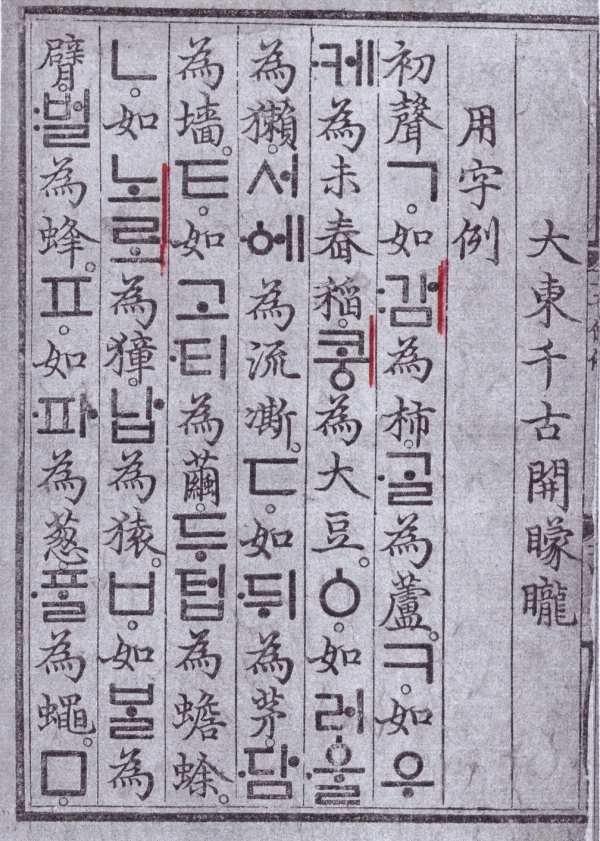 大東千古開矇矓
用字例
初聲ㄱ。如:감為柿。·ᄀᆞᆯ為蘆。ㅋ。如우
·케為未舂稻。콩為大豆。ㆁ。如러·ᅌᅮᆯ
為獺。서·ᅌᅦ為流凘。ㄷ。如·뒤為茅。·담
為墻。ㅌ。如고·티為繭。두텁為蟾蜍。
ㄴ。如노로為獐。납為猿。ㅂ。如ᄇᆞᆯ為
臂。:벌為蜂。ㅍ。如·파為葱。·ᄑᆞᆯ為蠅。ㅁ。